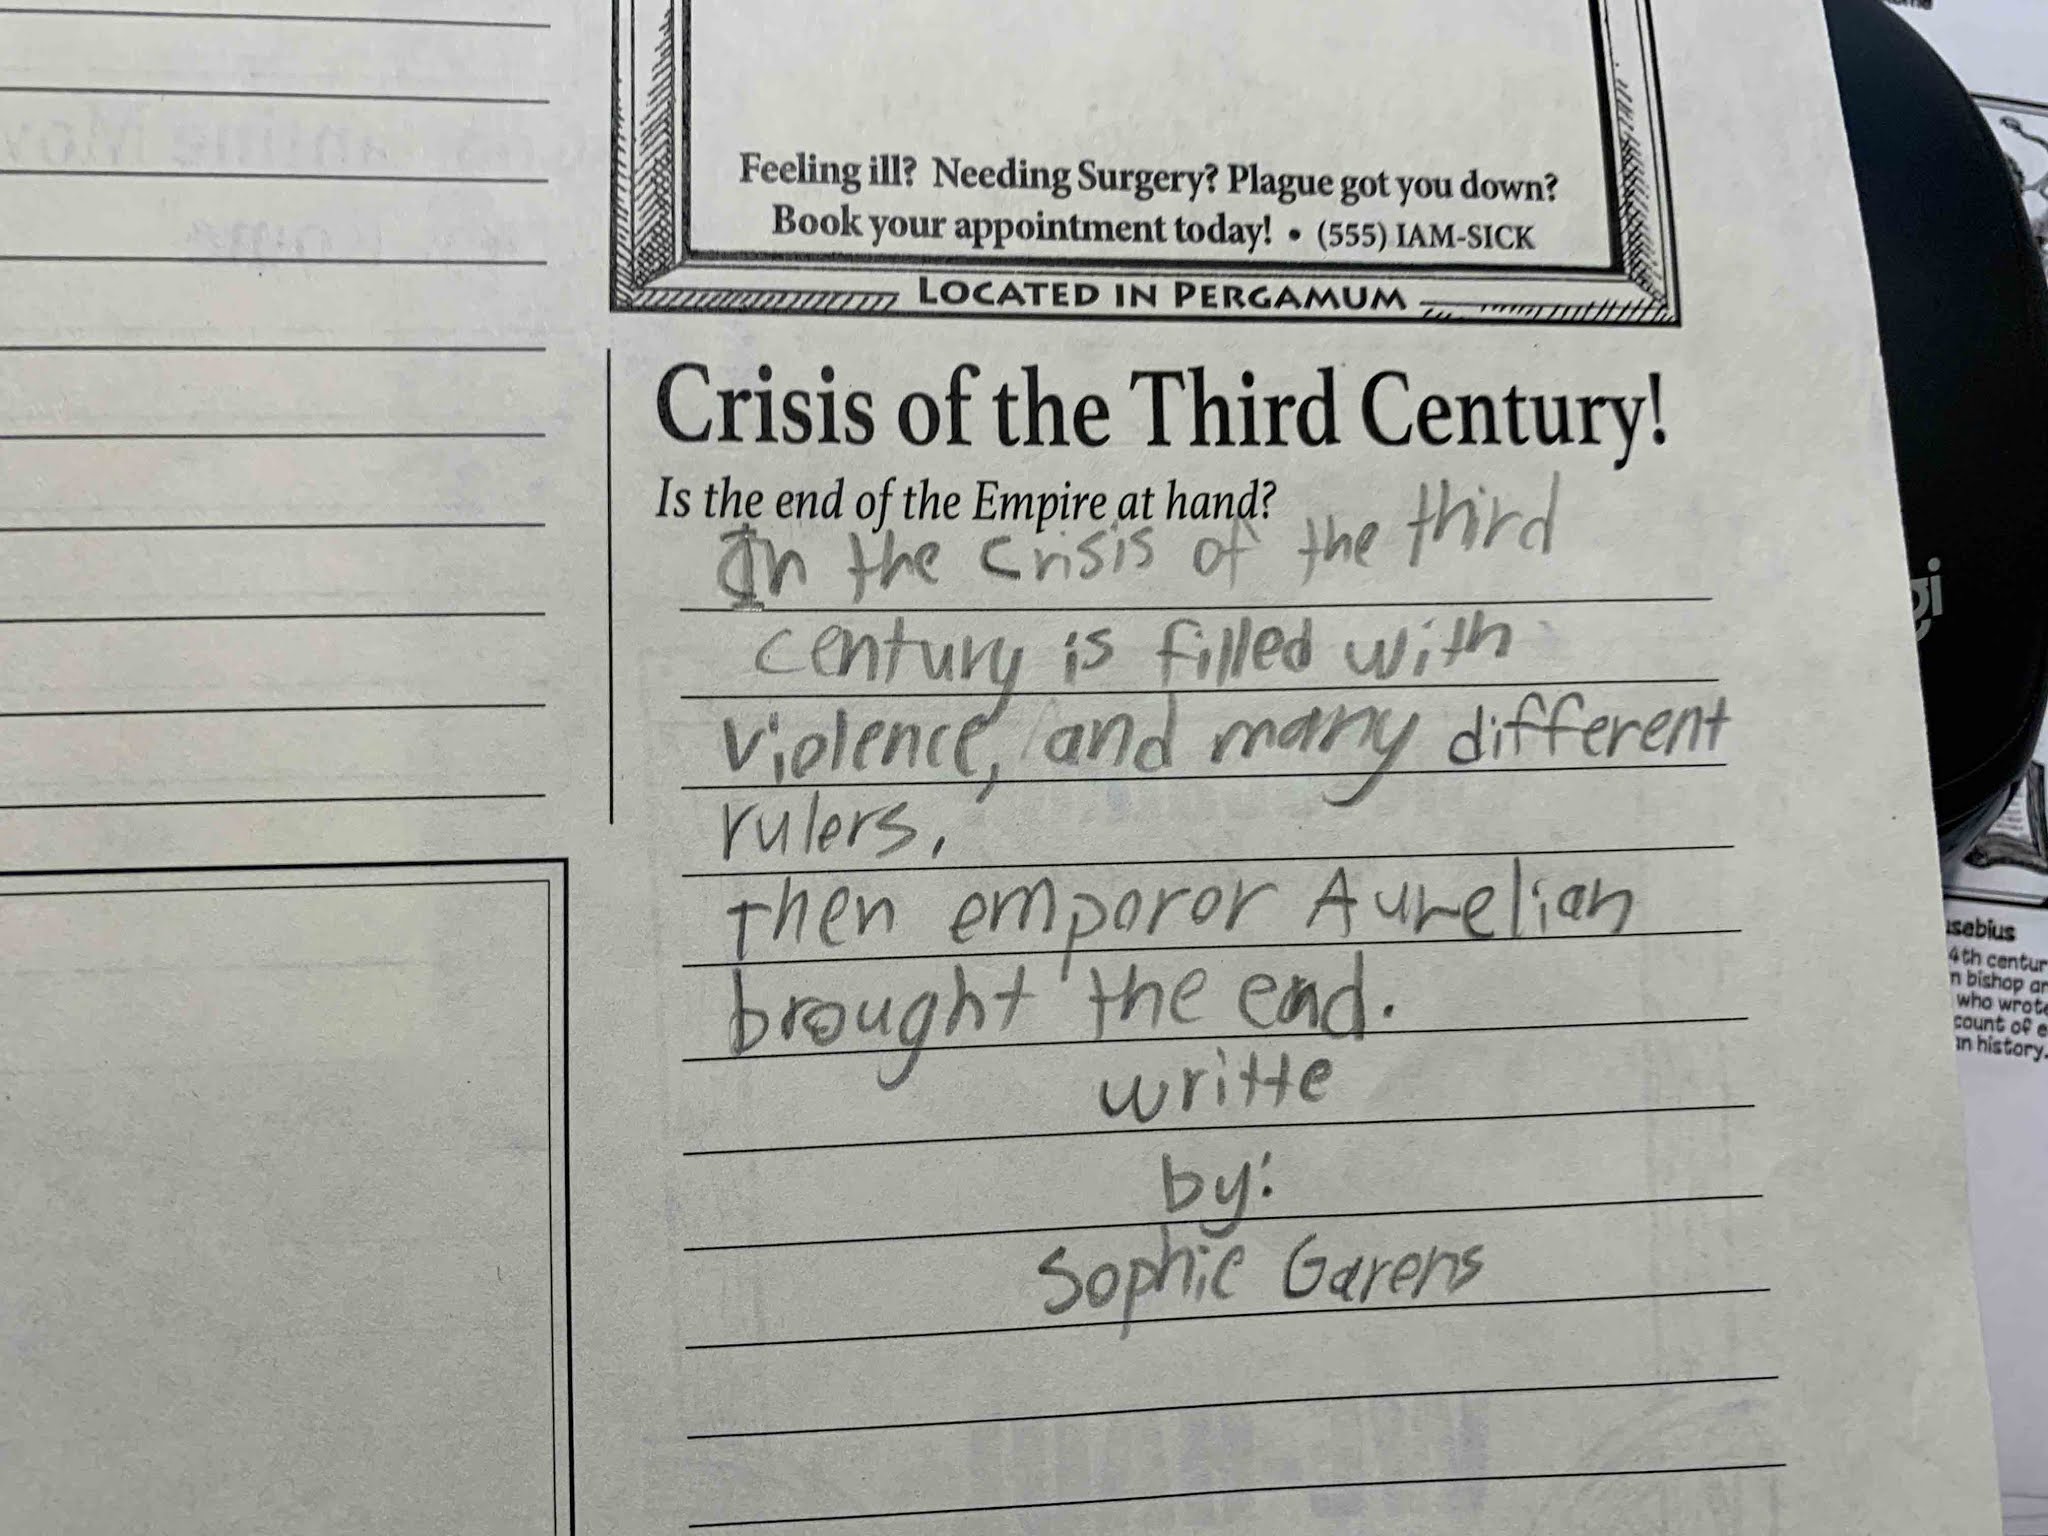 Feeling ill? Needing Surgery? Plague got you down?
Book your appointment today! • (555) IAM-SICK
LOCATED IN PERGAMUM
Crisis of the Third Century!
Is the end of the Empire at hand?
In the crisis of the third
century is filled with
violence, and many different
rulers,
then emporor Aurelian
brought the end.
writte
by:
Sophie Garens
gi
usebius
4th centur
n bishop an
who wrote
count of e
an history.